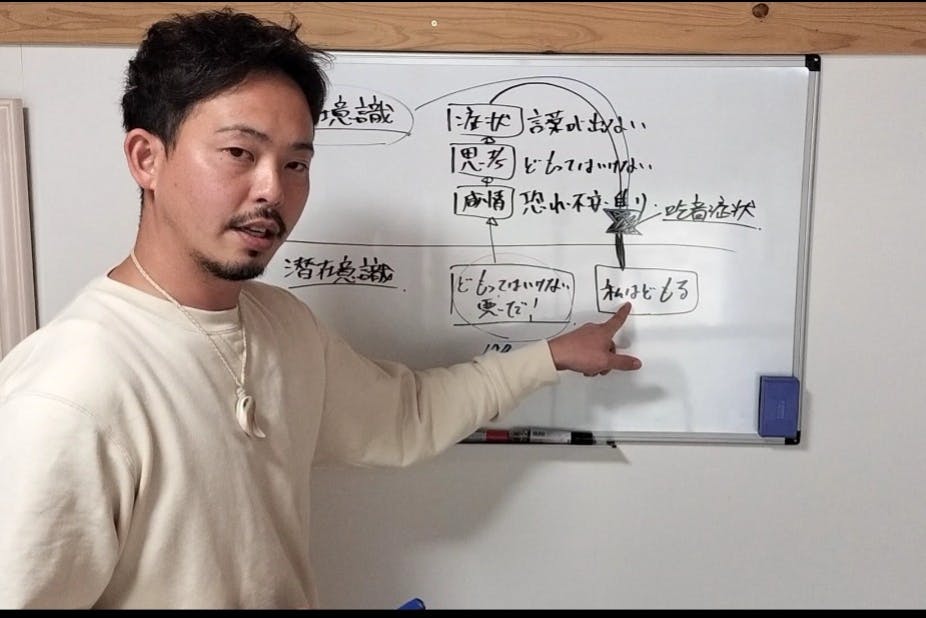 意識
症状 言葉が出ない
思考 どもってはいけない
感情 恐れ・不安・焦り
吃音症状
潜在意識
どもってはいけない
悪だ!
私はどもる